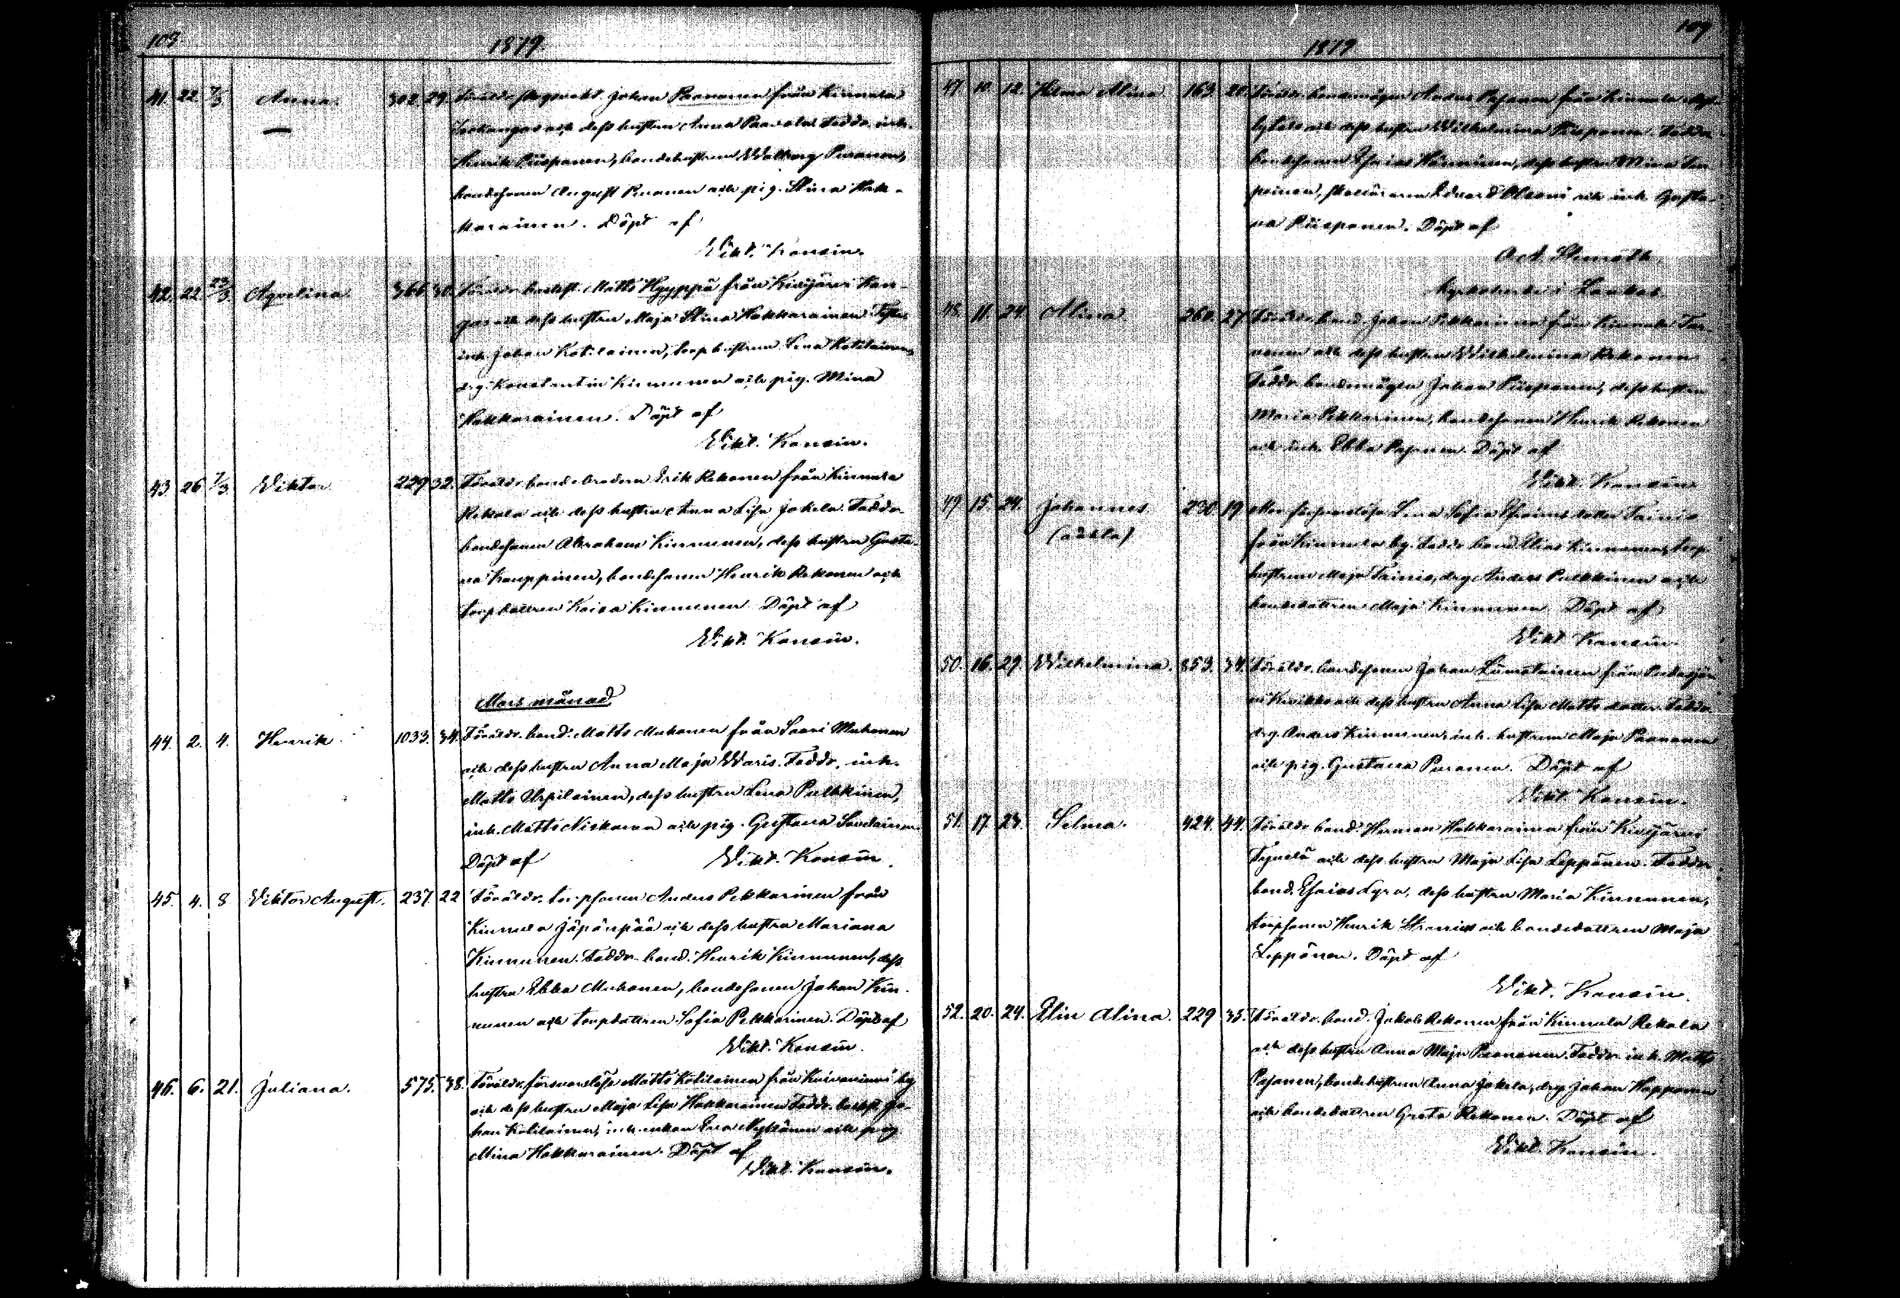 108
1879
41. 22. 2/3 Anna. 302. 29. Föräldr. Johan Paananen från Kinnula
och dess hustru Anna Faddr. inh.
Henrik Piispanen, bondehustrun Walborg Puranen,
bondesonen August Puranen och pig. Stina Hak-
karainen. Döpt af
Vikt. Konsin.
42. 22. 23/3 Agvelina 366 30. Föräldr. Matts Hyyppä från Kivijärvi Kan-
gas och dess hustru Maja Stina Hakkarainen
inh. Johan Kotilainen, Lena Kotilainen,
drg. Konstantin Kinnunen och pig. Mina
Hakkarainen. Döpt af
Vikt. Konsin.
43 26 1/3 Viktor 229 32. Föräldr. bondebrodern Erik Rekonen från Kinnula
Rekola och dess hustru Anna Lisa Jokela. Faddr.
bondesonen Abraham Kinnunen, dess hustru Gusta-
va Kauppinen, bondesonen Henrik Rekonen och
torpdottren Kaisa Kinnunen. Döpt af
Vikt. Konsin.
Mars månad
44. 2. 4. Henrik. 1033. 34. Föräldr. bond. Matts Muhonen från Saari Muhonen
och dess hustru Anna Maja Waris. Faddr. inh.
Matts Urpilainen, dess hustru Lena Pulkkinen,
inh. Matts Niskanen och pig. Gustava
Döpt af Vikt. Konsin.
45. 4. 8 Viktor August. 237. 22 Föräldr. torpsonen Anders Pekkarinen från
Kinnula Jäpänpää och dess hustru Mariana
Kinnunen. Faddr. bond. Henrik Kinnunen, dess
hustru Ebba Muhonen, bondesonen Johan Kin-
nunen och torpdottren Sofia Pekkarinen. Döpt af
Vikt. Konsin.
46. 6. 21. Juliana. 575. 38. Föräldr. försvarslöse Matts Kotilainen från by
och dess hustru Maja Lisa Hakkarainen. Faddr. Jo-
han Kotilainen, inh. enkan Eva Nykänen och pig.
Mina Hakkarainen. Döpt af
Vikt. Konsin.
109
1879
47 10. 12. Hilma Alina 163. 20. Föräldr. bondemågen Anders Pasanen från Kinnula
och dess hustru Wilhelmina Piispanen. Faddr.
bondesonen Esaias dess hustru Mina
Eduard och inh. Gusta-
va Piispanen. Döpt af
48. 11. 24 Alina. 260. 27 Föräldr. bond. Johan Pekkarinen från Kinnula
och dess hustru Wilhelmina Rekonen
Faddr. bondemågen Johan Piispanen, dess hustru
Maria Pekkarinen, bondesonen Henrik Rekonen
och inh. Ebba Pasanen. Döpt af
Vikt. Konsin
49 15. 24. Johannes 230. 19 Mor försvarslösa Lena Sofia Tainio
(oäkta)
från Kinnula by. Faddr. bond. Elias Kinnunen, torp.
hustrun Maja Tainio, drg. Anders Pulkkinen och
bondedottren Maja Kinnunen. Döpt af
Vikt. Konsin.
50. 16. 29. Wilhelmina. 853. 34. Föräldr. bondesonen Johan Liimatainen från
och dess hustru Anna Lisa Matts dotter. Faddr.
drg. Anders Kinnunen, inh. hustrun Maja Paananen
och pig. Gustava Puranen. Döpt af
Vikt. Konsin.
51. 17. 23. Selma. 424. 44. Föräldr. bond. Herman Hakkarainen från Kivijärvi
och dess hustru Maja Lisa Leppänen. Faddr.
bond. Esaias Lyra, dess hustru Maria Kinnunen,
torpsonen Henrik och bondedottren Maja
Leppänen. Döpt af
Vikt. Konsin.
52. 20. 24. Elin Alina. 229 35. Föräldr. bond. Jakob Rekonen från Kinnula Rekola
och dess hustru Anna Maja Paananen. Faddr. inh. Matts
Pasanen, bondehustrun Anna Jokela, drg. Johan Hopponen
och bondedottren Greta Rekonen. Döpt af
Vikt. Konsin.